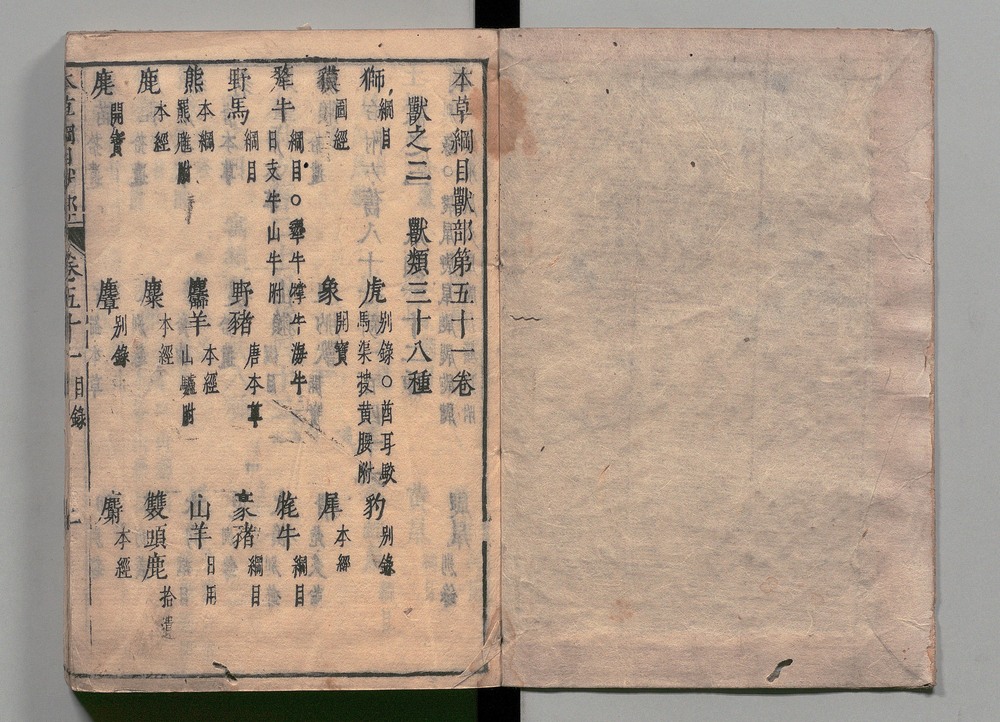 本草綱目獸部第五十一卷
獸之二　獸類三十八種
獅綱目　虎別錄○酋耳駮馬渠搜黃腰附　豹別錄
貘圖經　象開寶　犀本經
犛牛綱目○犩牛㹈牛海牛月支牛山牛附　牦牛綱目
野馬綱目　野豬唐本草　豪豬綱目
熊本綱羆魋附　麢羊本經山驢附　山羊日用
鹿本經　麋本經　雙頭鹿拾遺
麂開寶　麞別錄　麝本經
本草綱目獸部　卷五十一目錄　一